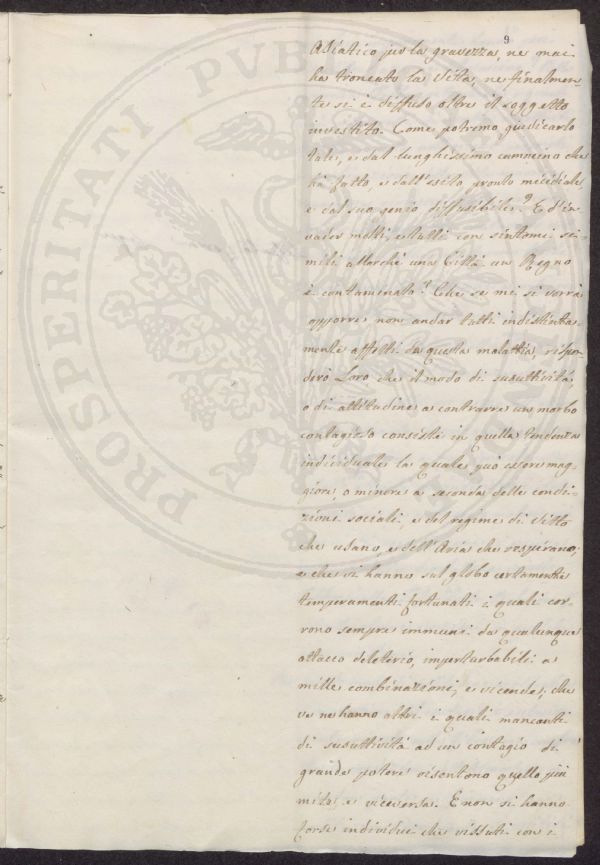 9
Asiatico per la gravezza, ne mai
ha troncato la vita, ne finalmen-
te si è diffuso oltre il soggetto
investito. Come potremo giudicarlo
tale, e dal lunghissimo cammino che
ha fatto, e dall'esito pronto micidiale,
e dal suo genio diffusibile? E d'in
vader molti, e tutti con sintomi si-
mili allorchè una Città un Regno
è contaminato? Che se mi si vorrà
opporre non andar tutti indistinta
mente affetti da questa malattia, rispon
derò Loro che il modo di susuttività,
o di attitudine a contrarre un morbo
contagioso consiste in quella tendenza
individuale la quale può essere mag-
giore, o minore a seconda delle condi-
zioni sociali, e del regime di vitto
che usano, e dell'Aria che respirano;
e che vi hanno sul globo certamente
temperamenti fortunati i quali cor-
rono sempre immuni da qualunque
attacco deleterio, imperturbabili a
mille combinazioni, e vicende, che
ve ne hanno altri i quali mancanti
di susuttività ad un contagio di
grande potere risentono quello più
mite, e viceversa. E non si hanno
forse individui che vissuti con i
PROSPERITATI PUBLICAE